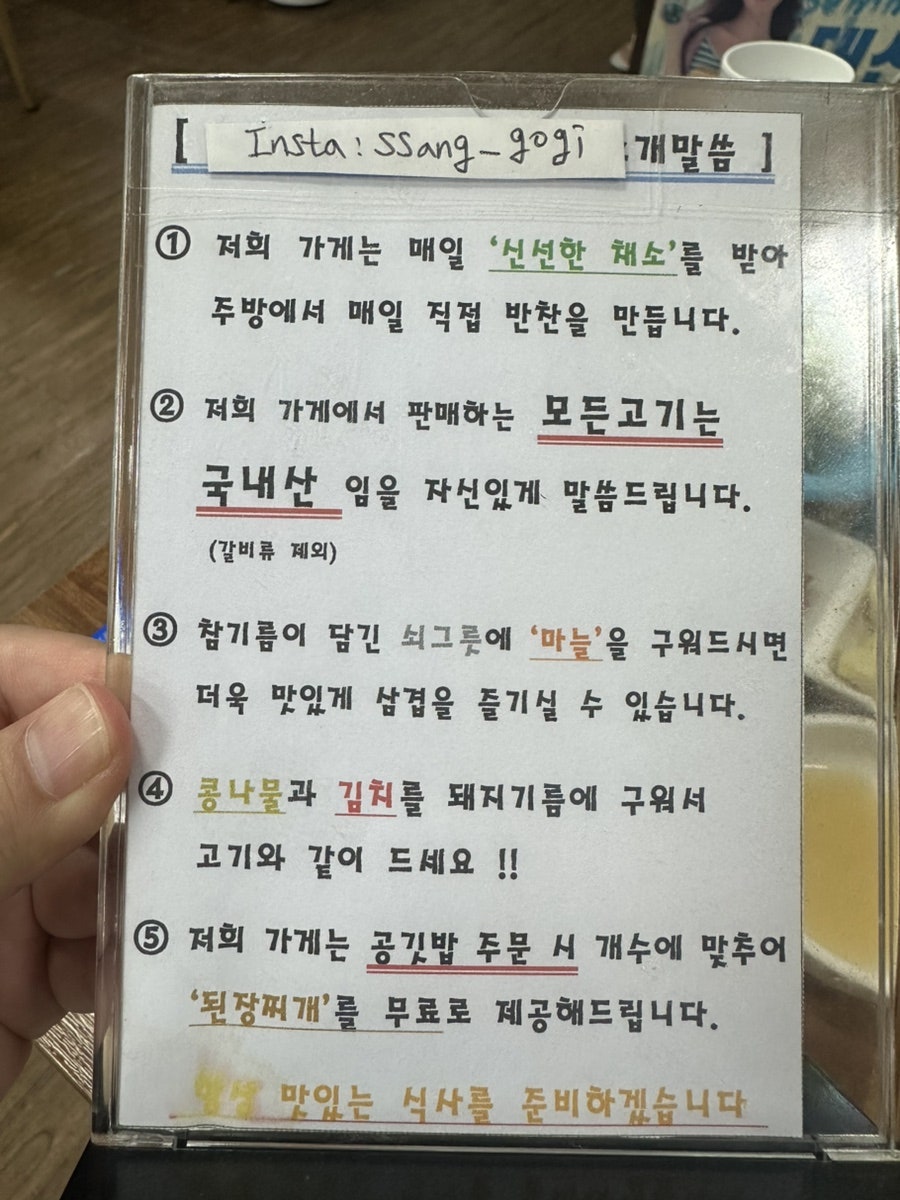 [ Insta : ssang_gogi 개말씀 ]
① 저희 가게는 매일 '신선한 채소'를 받아
주방에서 매일 직접 반찬을 만듭니다.
② 저희 가게에서 판매하는 모든고기는
국내산 임을 자신있게 말씀드립니다.
(갈비류 제외)
③ 참기름이 담긴 쇠그릇에 '마늘'을 구워드시면
더욱 맛있게 삼겹을 즐기실 수 있습니다.
④ 콩나물과 김치를 돼지기름에 구워서
고기와 같이 드세요 !!
⑤ 저희 가게는 공깃밥 주문 시 개수에 맞추어
'된장찌개'를 무료로 제공해드립니다.
맛있는 식사를 준비하겠습니다